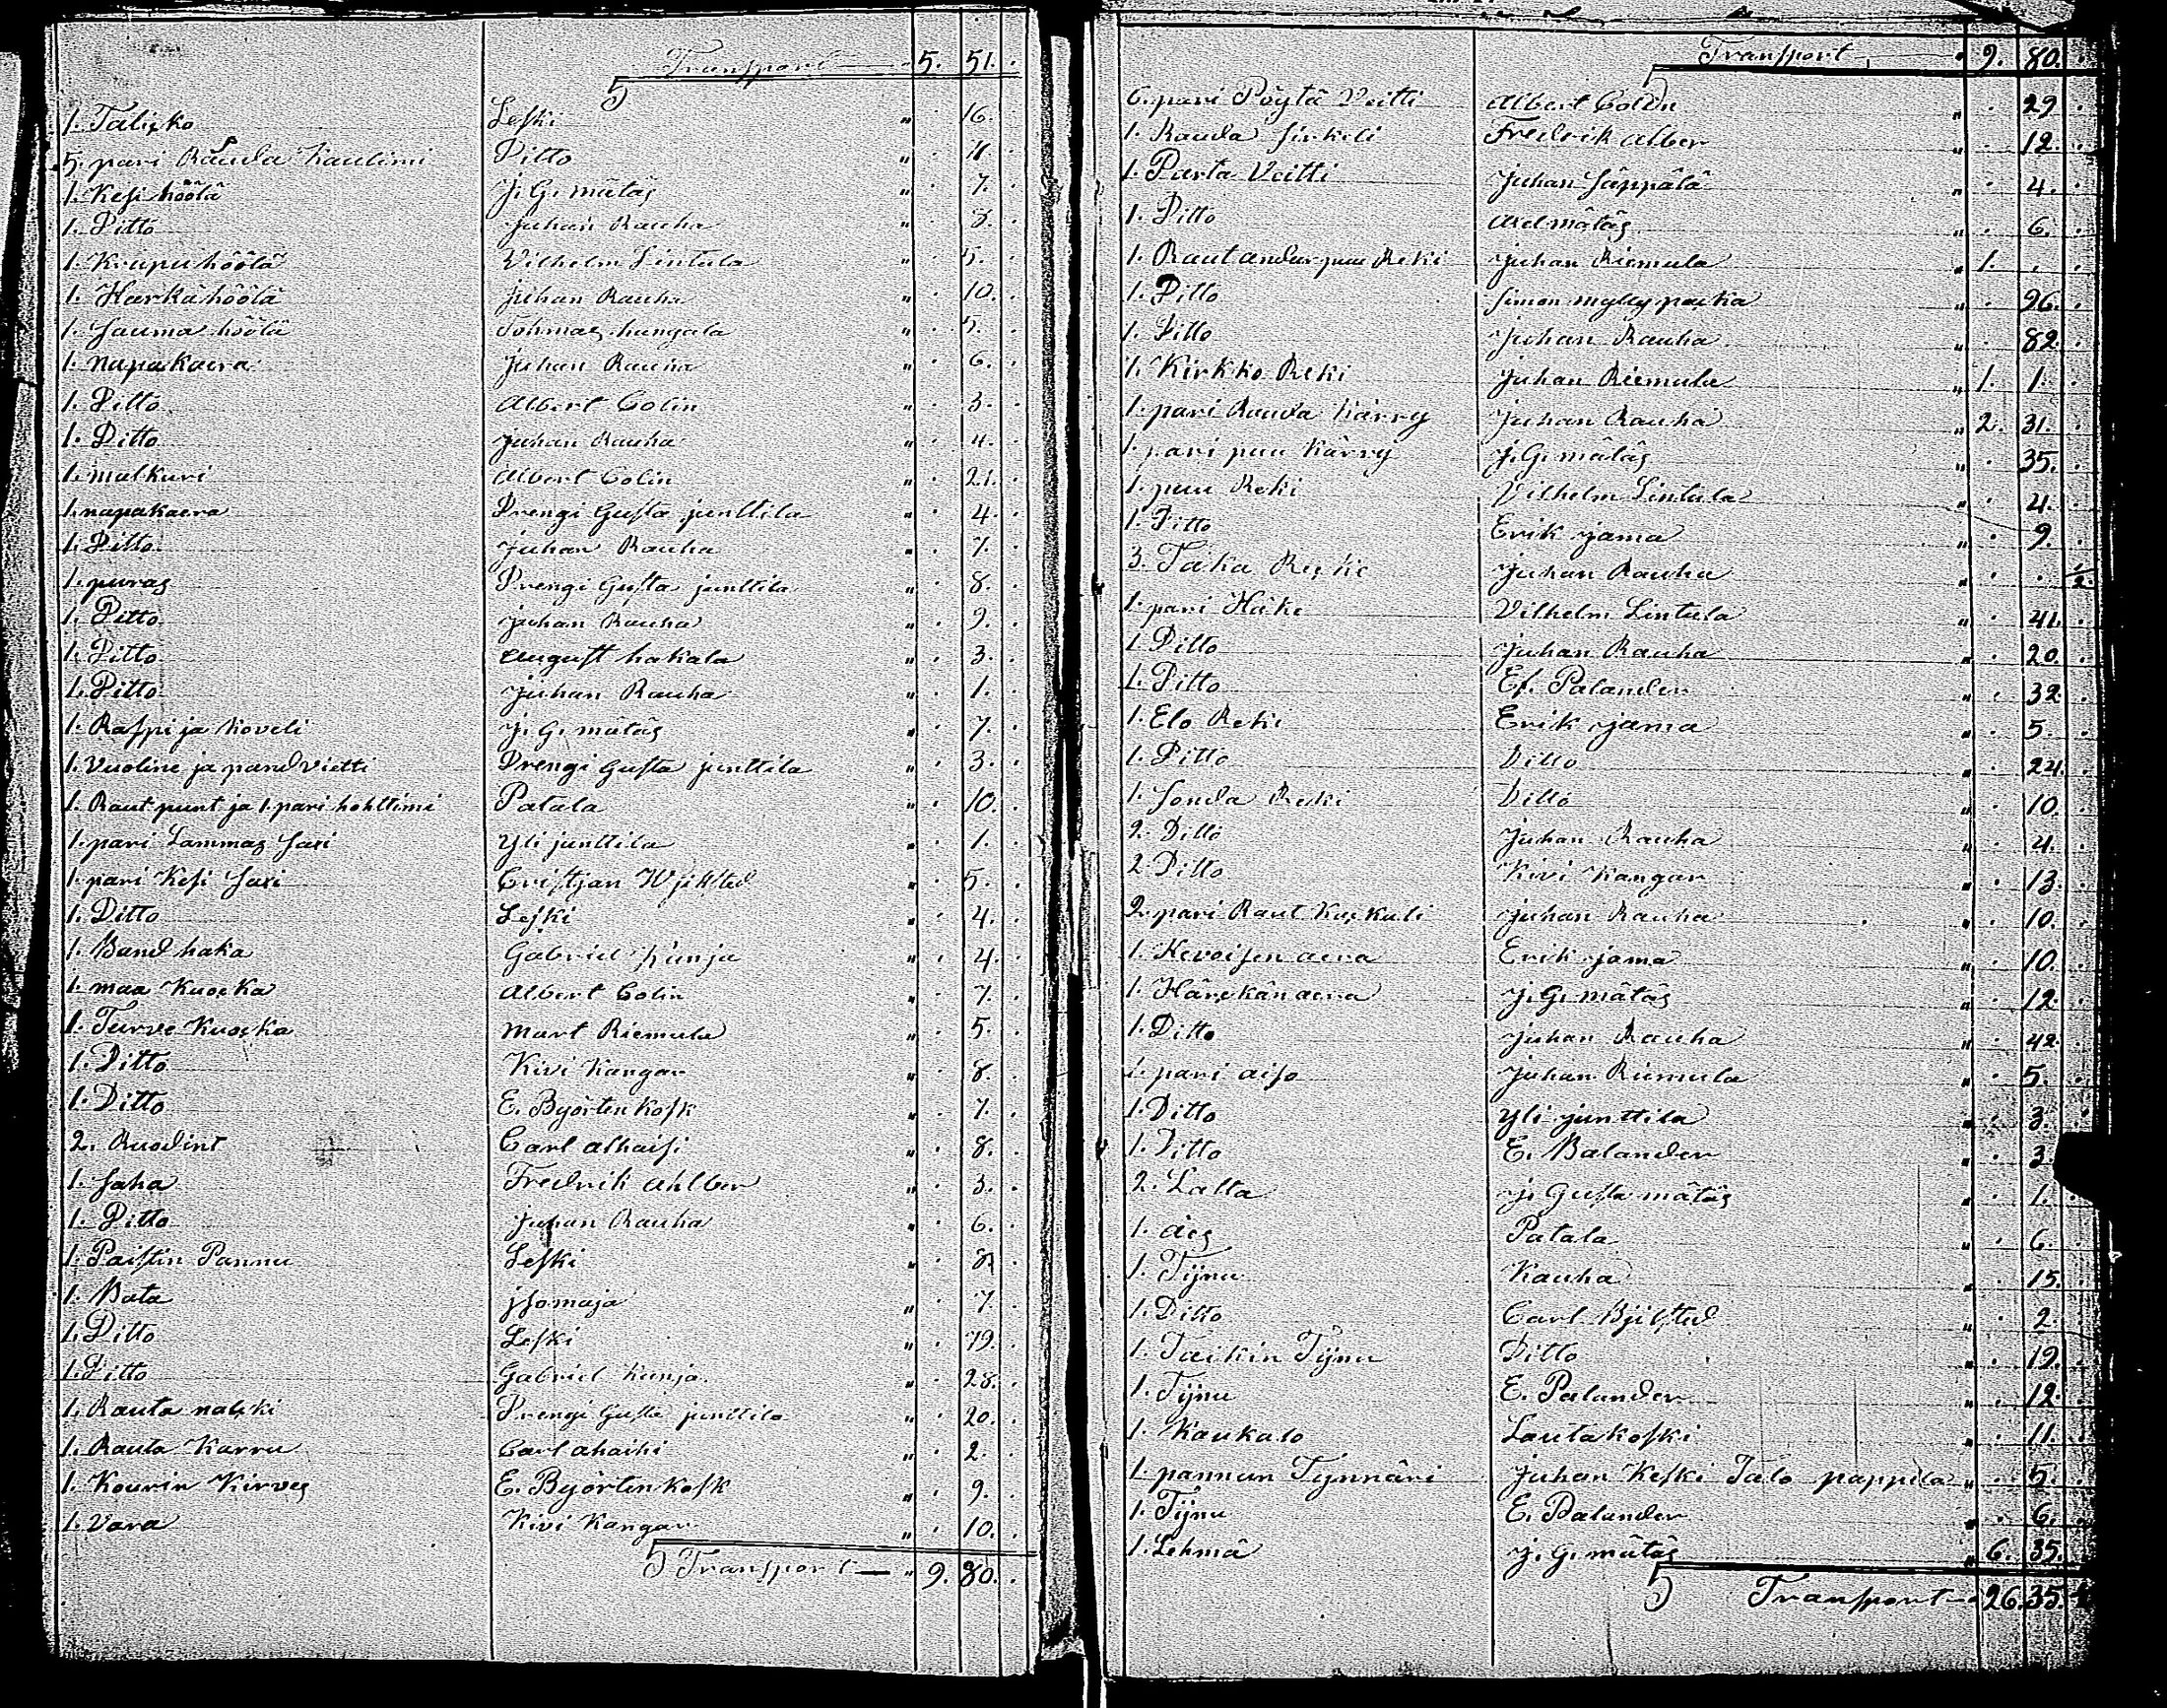 Transport — " 5. 51. .
1. Talisko Leski " . 16. .
5. pari Rauda Kaulimi Ditto " . 11. .
1. Kesi höölä J. G. mätäs " . 7. .
1. Ditto Juhan Rauha " . 8. .
1. Krupu höölä Vilhelm Lintula " . 5. .
1. Harkä höölä Juhan Rauha . 10. .
1. Sauma höölä Tohmas hungala " . 5. .
1. napakaera Juhan Rauha " . 6. .
1. Ditto Albert Colin " . 3. .
1. Ditto Juhan Rauha " . 4. .
1. malkuri Albert Colin " . 21. .
1. napakaera Drengi Gusta junttila " . 4. .
1. Ditto Juhan Rauha " . 7. .
1. puras Drengi Gusta junttila " . 8. .
1. Ditto Juhan Rauha " . 9. .
1. Ditto august hakala " . 3. .
1. Ditto Juhan Rauha " . 1. .
1. Raspi ja Koveli J. G. mätäs " . 7. .
1. Vuoline ja pandvietti Drengi Gusta junttila " . 3. .
1. Raut punt ja 1. pari hohtimi Patala " . 10. .
1. pari Lammas Saxi Yli junttila " . 1. .
1. pari Kesi Saxi Cristjan Wjiksted " . 5. .
1. Ditto Leski " . 4. .
1. Band haka Gabriel Kunja " . 4. .
1. maa Kuocka Albert Colin " . 7. .
1. Turve Kuocka Mart Riemula " . 5. .
1. Ditto Kivi Kangar " . 8. .
1. Ditto E. Byörtenkosk " . 7. .
2. Ruodint Carl alhaisi " . 8. .
1. Saha Fredrik ahlber " . 3. .
1. Ditto Juhan Rauha " . 6. .
1. Paistin Pannu Leski " . 8. .
1. Bata jsomaja " . 7. .
1. Ditto Leski " . 19. .
1. Ditto Gabriel Kunja " . 28. .
1. Rauta nalcki Drengi Gusta junttila " . 20. .
1. Rauta Karru Carl ahaihi " . 2. .
1. Kourin Kirves E. Byörtenkosk " . 9. .
1. Vara Kivi Kangar " . 10. .
Transport — " 9. 80. .
Transport — " 9. 80. .
6. pari Pöytä Veitti Albert Colin . 29 .
1. Rauda sinkeli Fredrik alber " . 12. .
1. Parta Veitti Juhan Säppälä " . 4. .
1. Ditto Axel mätäs " . 6. .
1. Raut andur puu Reki Juhan Riemula " 1. . .
1. Ditto Simon myllypaika " . 96. .
1. Ditto Juhan Rauha " . 82. .
1. Kirkko Reki Juhan Riemula " 1. 1. .
1. pari Rauda Kärry Juhan Rauha " 2. 31. .
1. pari puu Kärry J. G. mätäs " . 35. .
1. puu Reki Vilhelm Lintula " . 4. .
1. Ditto Erik jama " . 9. .
3. Taka Recke Juhan Rauha " . . 1/2.
1. pari Häke Vilhelm Lintula " . 41. .
1. Ditto Juhan Rauha " . 20. .
1. Ditto Ef. Palander " . 32. .
1. Elo Reki Erik jama " . 5. .
1. Ditto Ditto " . 24. .
1. Sonda Reki Ditto " . 10. .
2. Ditto Juhan Rauha " . 4. .
2. Ditto Kivi Kangar " . 13. .
2. pari Raut Kuckuli Juhan Rauha " . 10. .
1. Hevoisen aera Erik jama " . 10. .
1. Härckän aera J. G. mätäs " . 12. .
1. Ditto Juhan Rauha " . 42. .
1. pari aiso Juhan Riemula " . 5. .
1. Ditto Yli junttila " . 3. .
1. Ditto E. Balander " . 3.
2. Latta J. Gusta mätäs " . 1. .
1. äes Patala " . 6. .
1. Tijnu Rauha " . 15. .
1. Ditto Carl Bjiksted " . 2. .
1. Taikin Tijnu Ditto " . 19. .
1. Tijnu E. Palander " . 12. .
1. Kaukalo Lautakoski " . 11. .
1. pannun Tynnäri Juhan Keski Talo pappila " . 5. .
1. Tijnu E. Palander " . 6. .
1. Lehmä J. G. mätäs " 6. 35. .
Transport — " 26. 35. 1/2